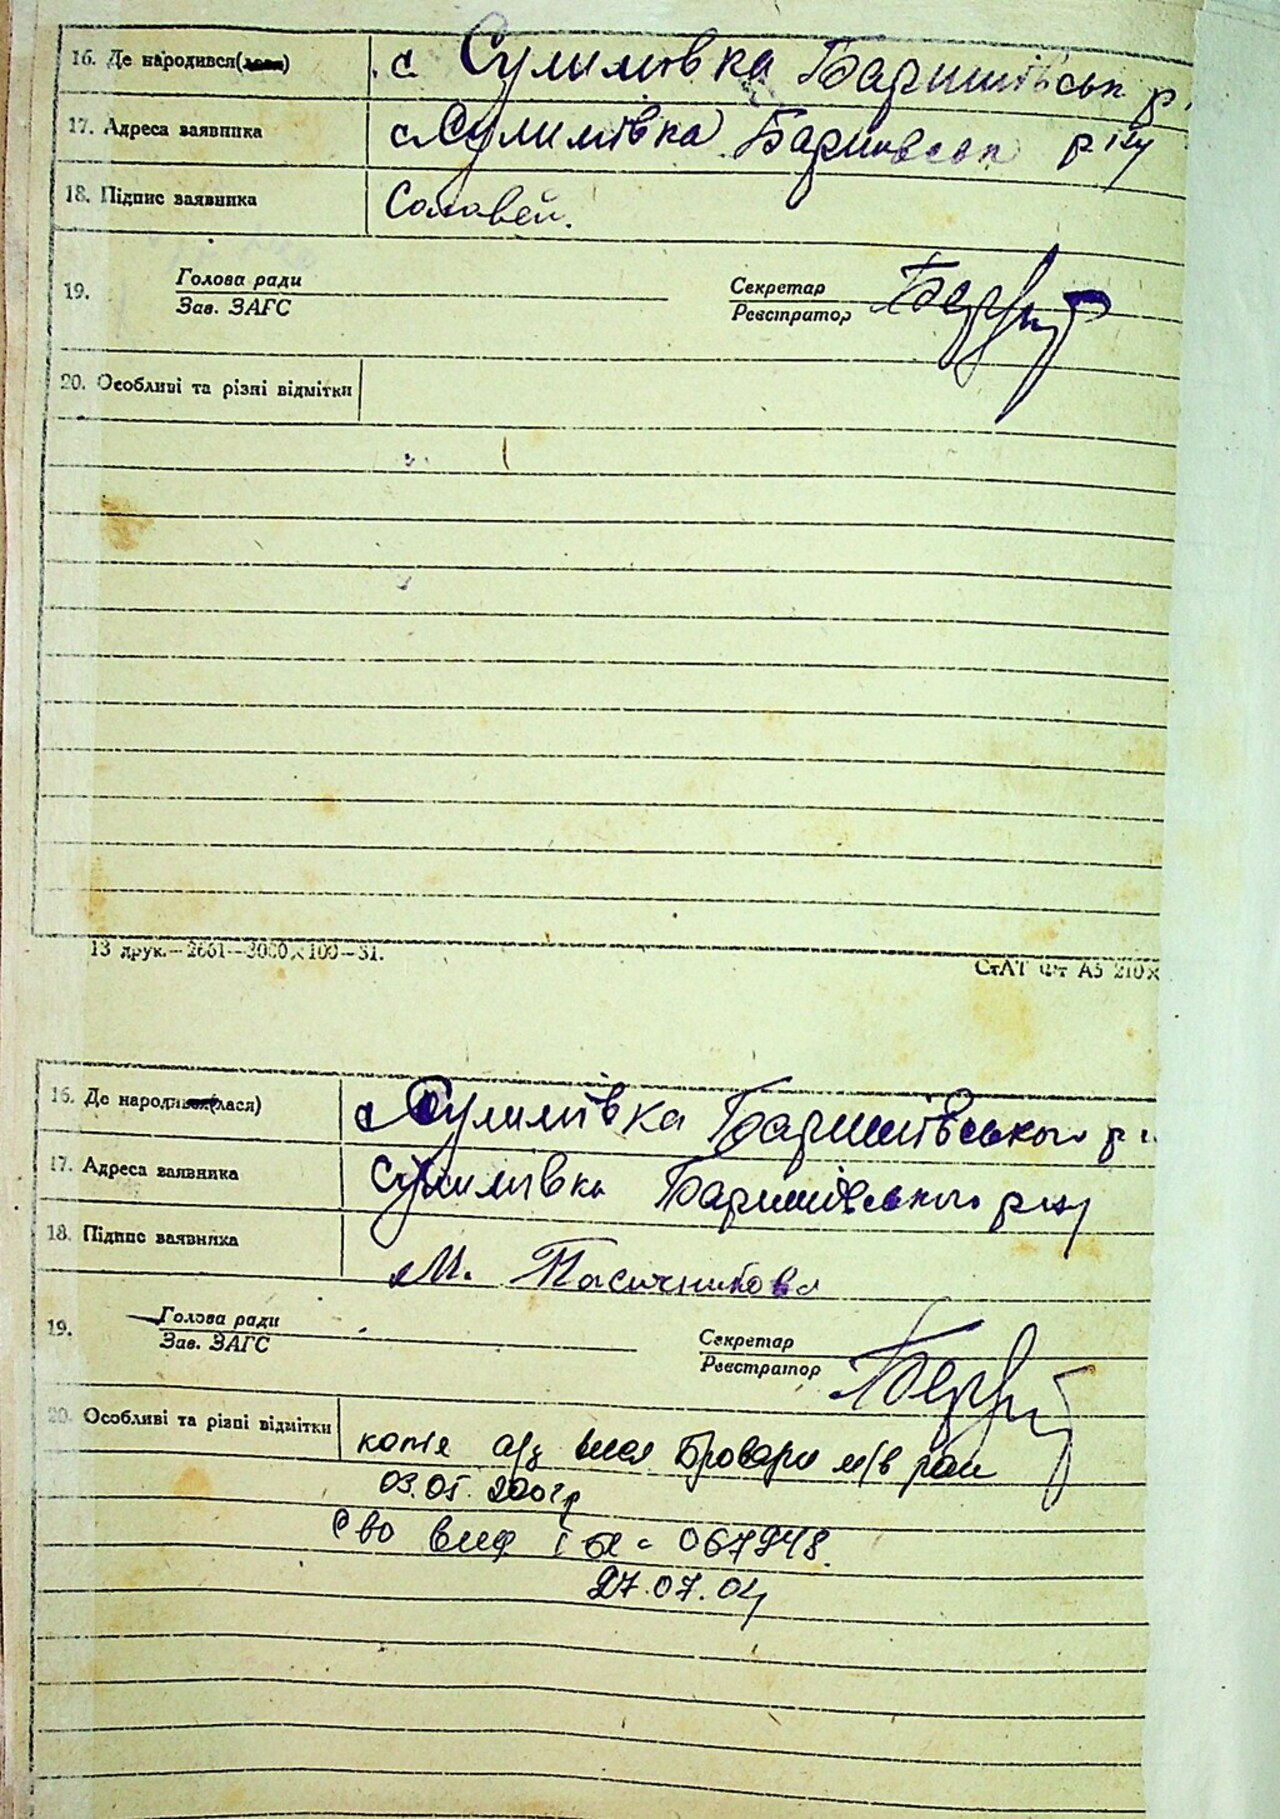 16. Де народився(лася) с Сулимівка Баришівськ р
17. Адреса заявника с Сулимівка Баришівськ р-ну
18. Підпис заявника Соловей.
19. Голова ради Секретар
Зав. ЗАГС Реєстратор
20. Особливі та різні відмітки
13 друк.—2661—3000×100—51.
СтАТ ф-т А5 210×
16. Де народився(лася) с Сулимівка Баришівського р
17. Адреса заявника Сулимівка Баришівського р-ну
18. Підпис заявника М. Пасічникова
19. Голова ради Секретар
Зав. ЗАГС Реєстратор
20. Особливі та різні відмітки копія а/з Бровари м/в
03.05.
сво вид 067948.
27.07.04